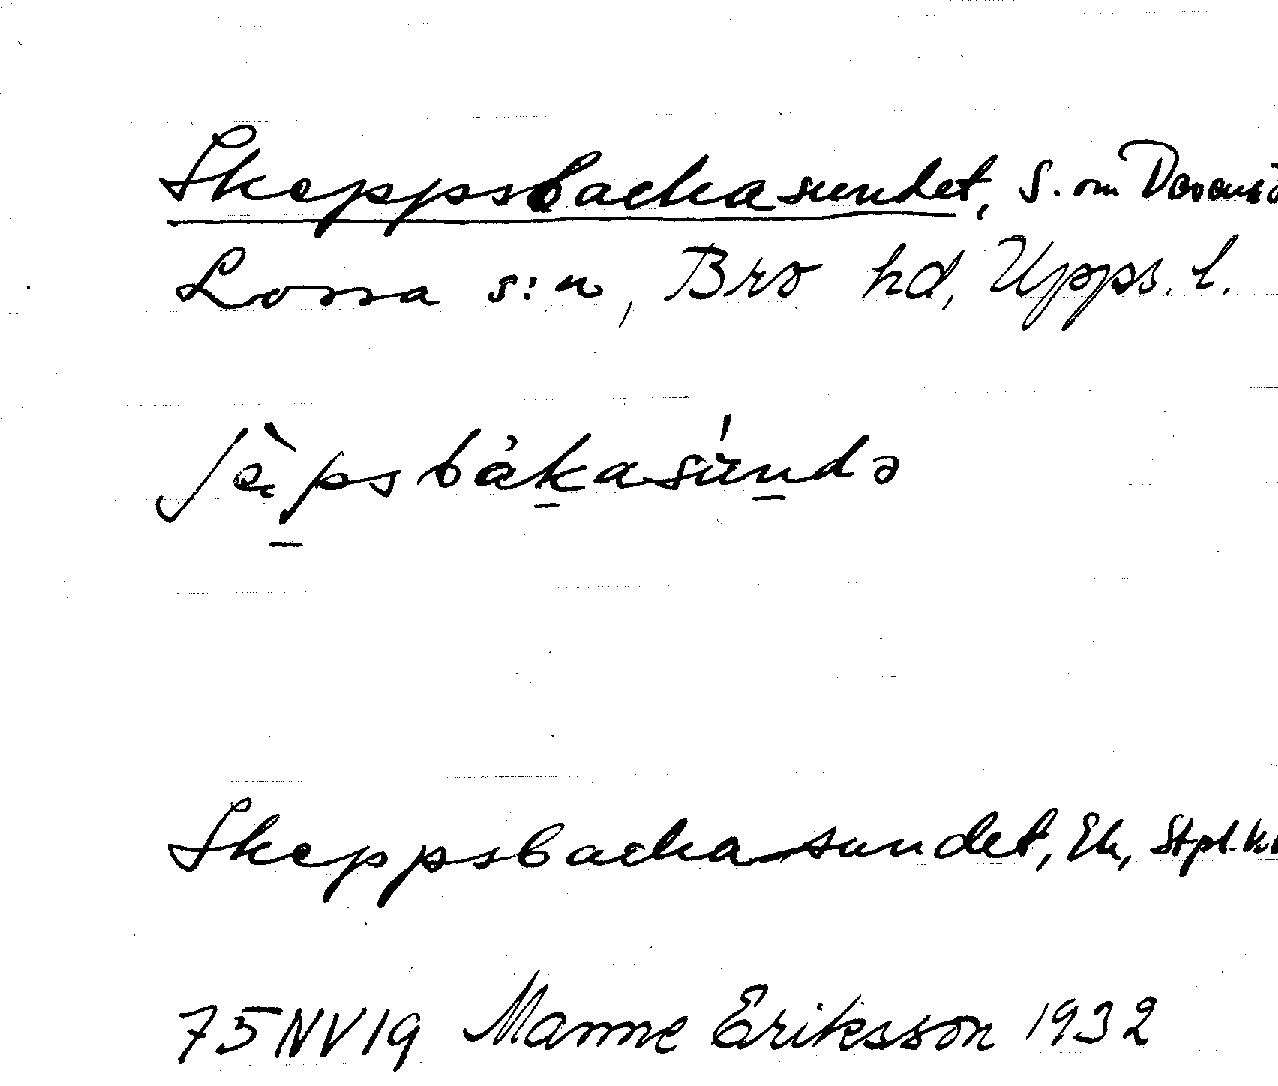 Skeppsbackasundet, S. om
Lossa s:n, Bro hd, Upps. l.
ʃèpsbàkasúndə
Skeppsbackasundet, Ek,
75NV19 Manne Eriksson 1932